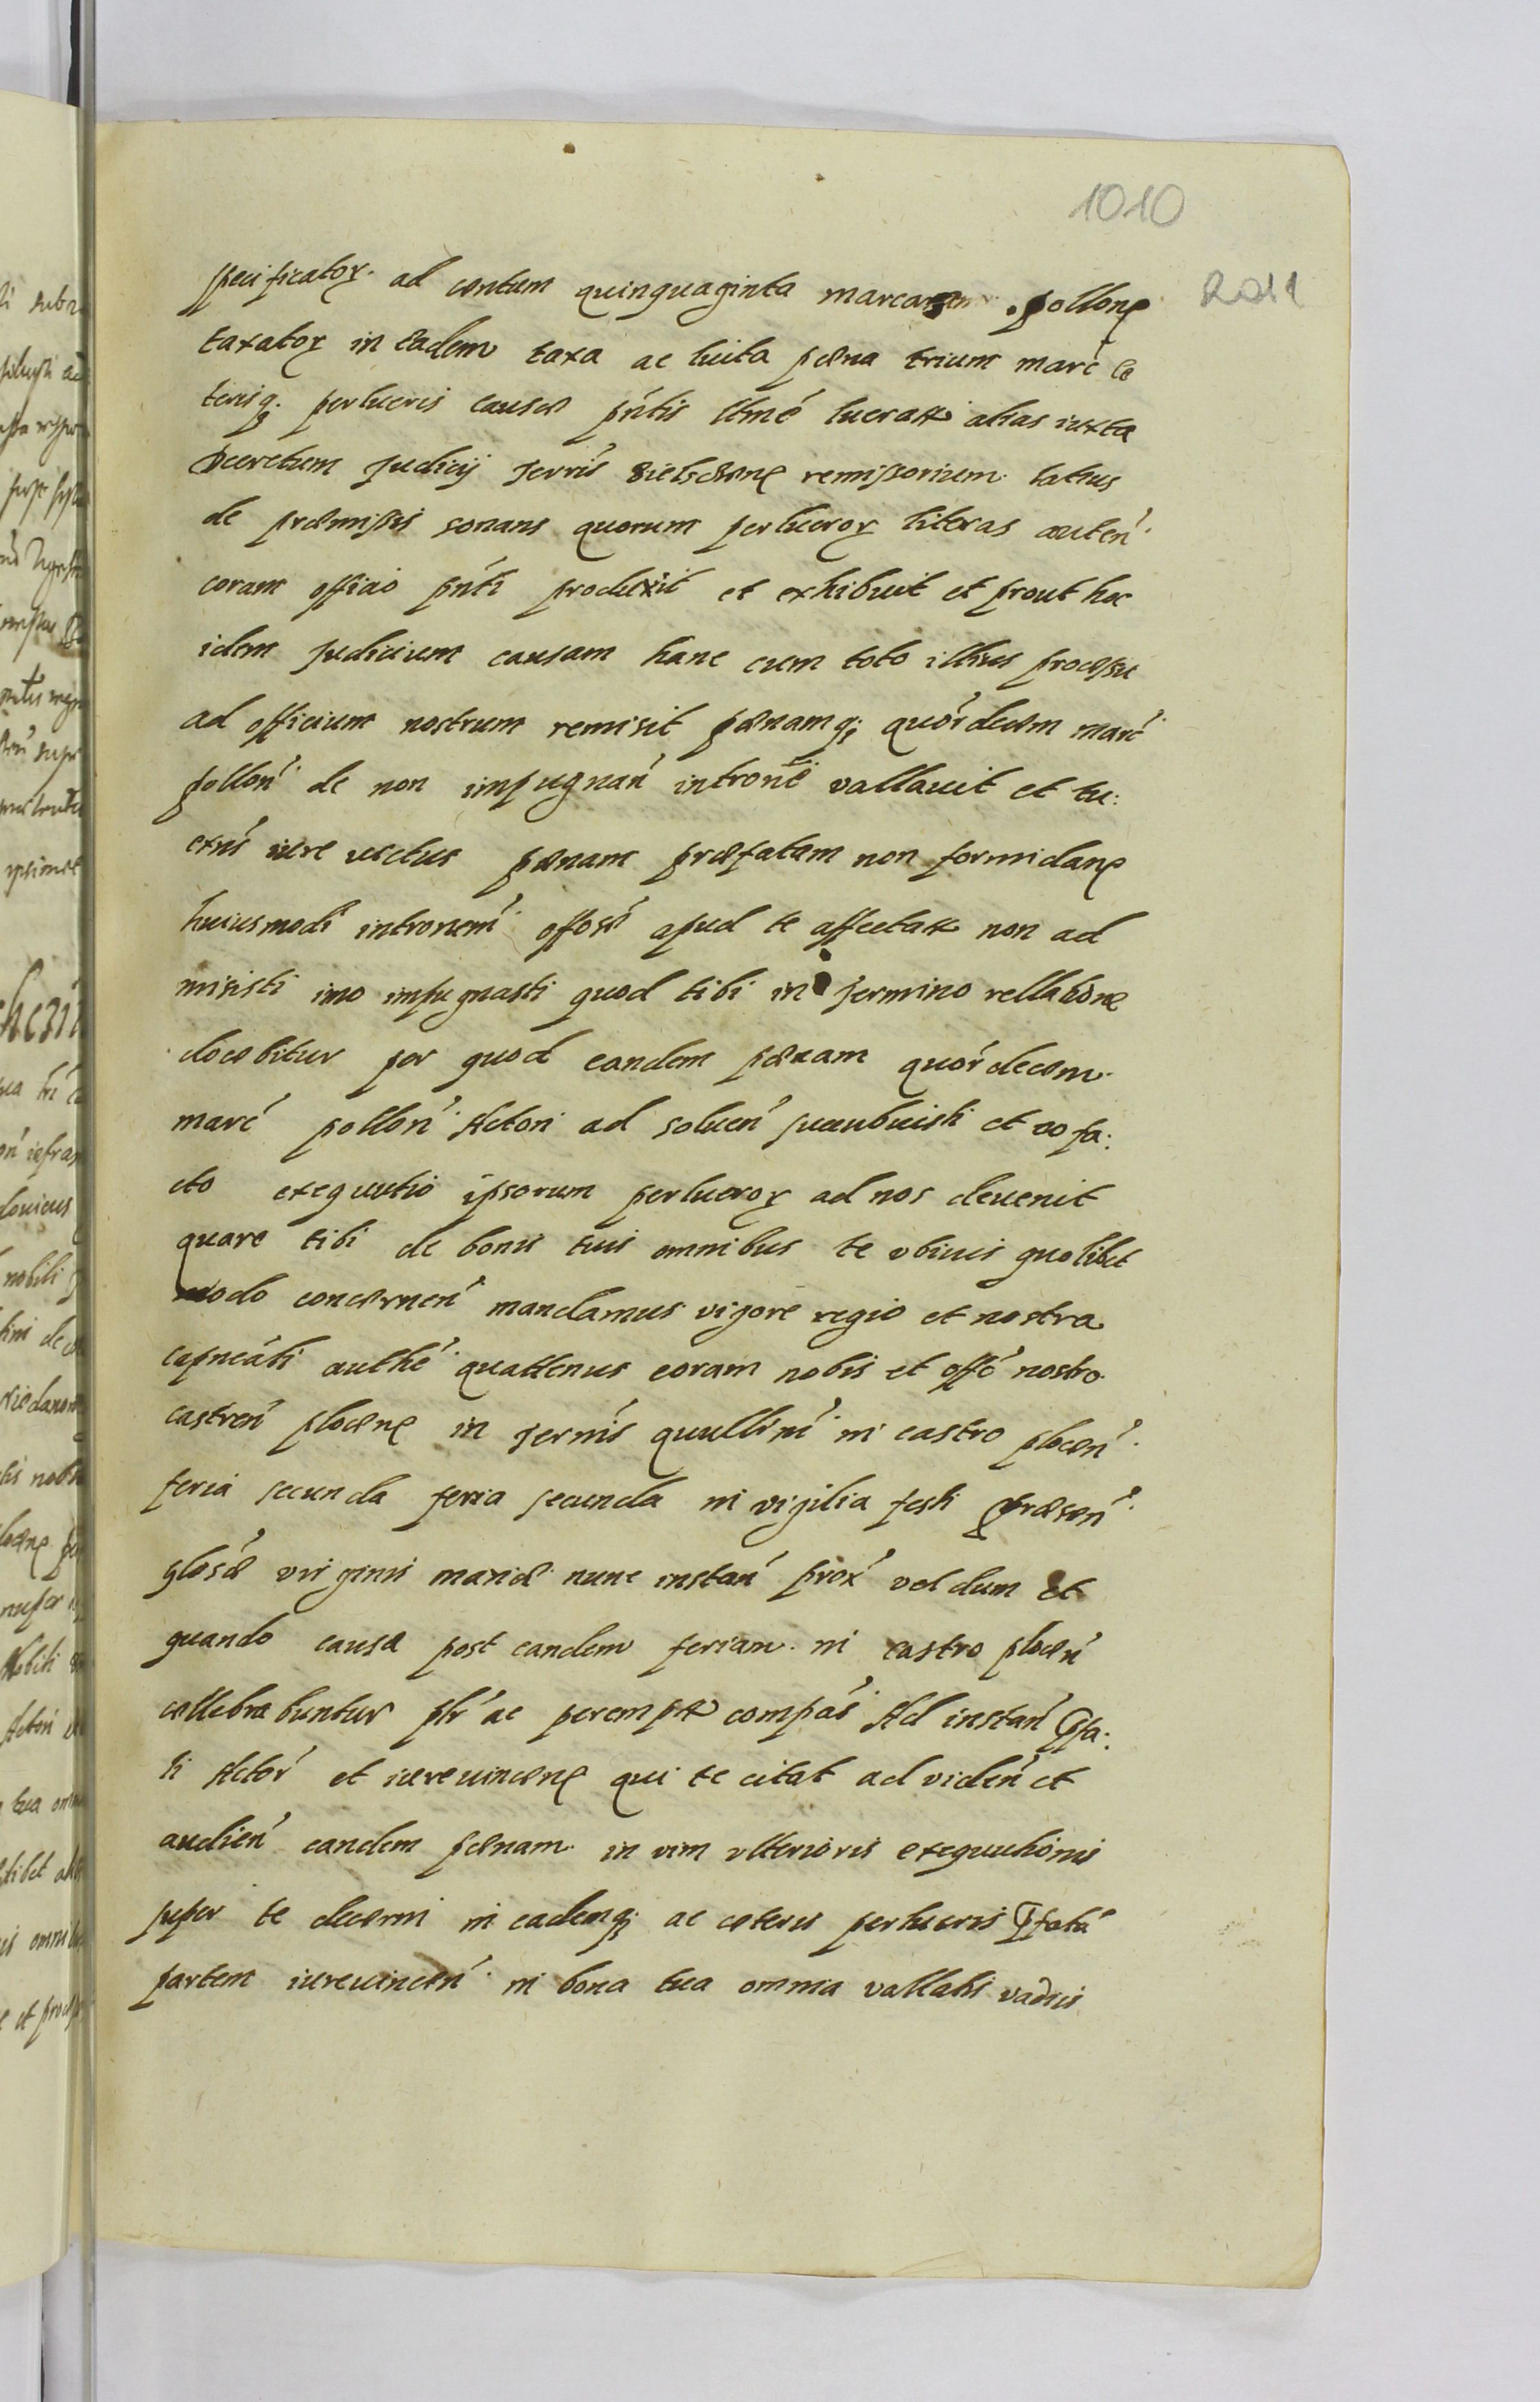 1010
specificator. ad centum quinquaginta marcarum pollone
taxator in eadem taxa ac luita pæna trium marc ce
terisq. perlucris causæ pńtis ltmé lucratæ alias iuxta
Decretum Judicij terrís Bielscene remissorium latius
de præmissis sonans quorum perlucror literas autén
coram officio pńti produxit et exhibuit et prout hoc
idem Judicium causam hanc cum toto illius processu
ad officium nostrum remisit pænamq; quórdecem marć
pollón de non impugnań intronē vallauit et tu:
pænam præfatam non formidane
huiusmodi intronem offosæ apud te affectatæ non ad
misisti imo impugnasti quod tibi in termino rellatione
docebitur per quod eandem pænam quórdecem
marć pollón Actori ad soluén succubuisti et eo fa:
cto exequutio ipsorum perlucror ad nos deuenit
quare tibi de bonis tuis omnibus te vbiuis quolibet
modo concernén mandamus vigore regio et nostra
capneáti authé quattenus coram nobis et offó nostro
castrén plocene in termís quullini in castro plocén
feria secunda feria secunda in vigilia festi præsen
glosæ virginis mariæ nunc instań prox́ vel dum et
quando causæ post eandem feriam in castro plocén
cællebrabuntur plr ac perempæ compás Ad instań pfa:
ti Actoŕ et iureuincene qui te citat ad vidén et
audień eandem pænam in vim vlterioris exequutionis
super te decerni in eademq; ac ceteris perlucris pfatá
partem iureuincén in bona tua omnia vallati vadijs